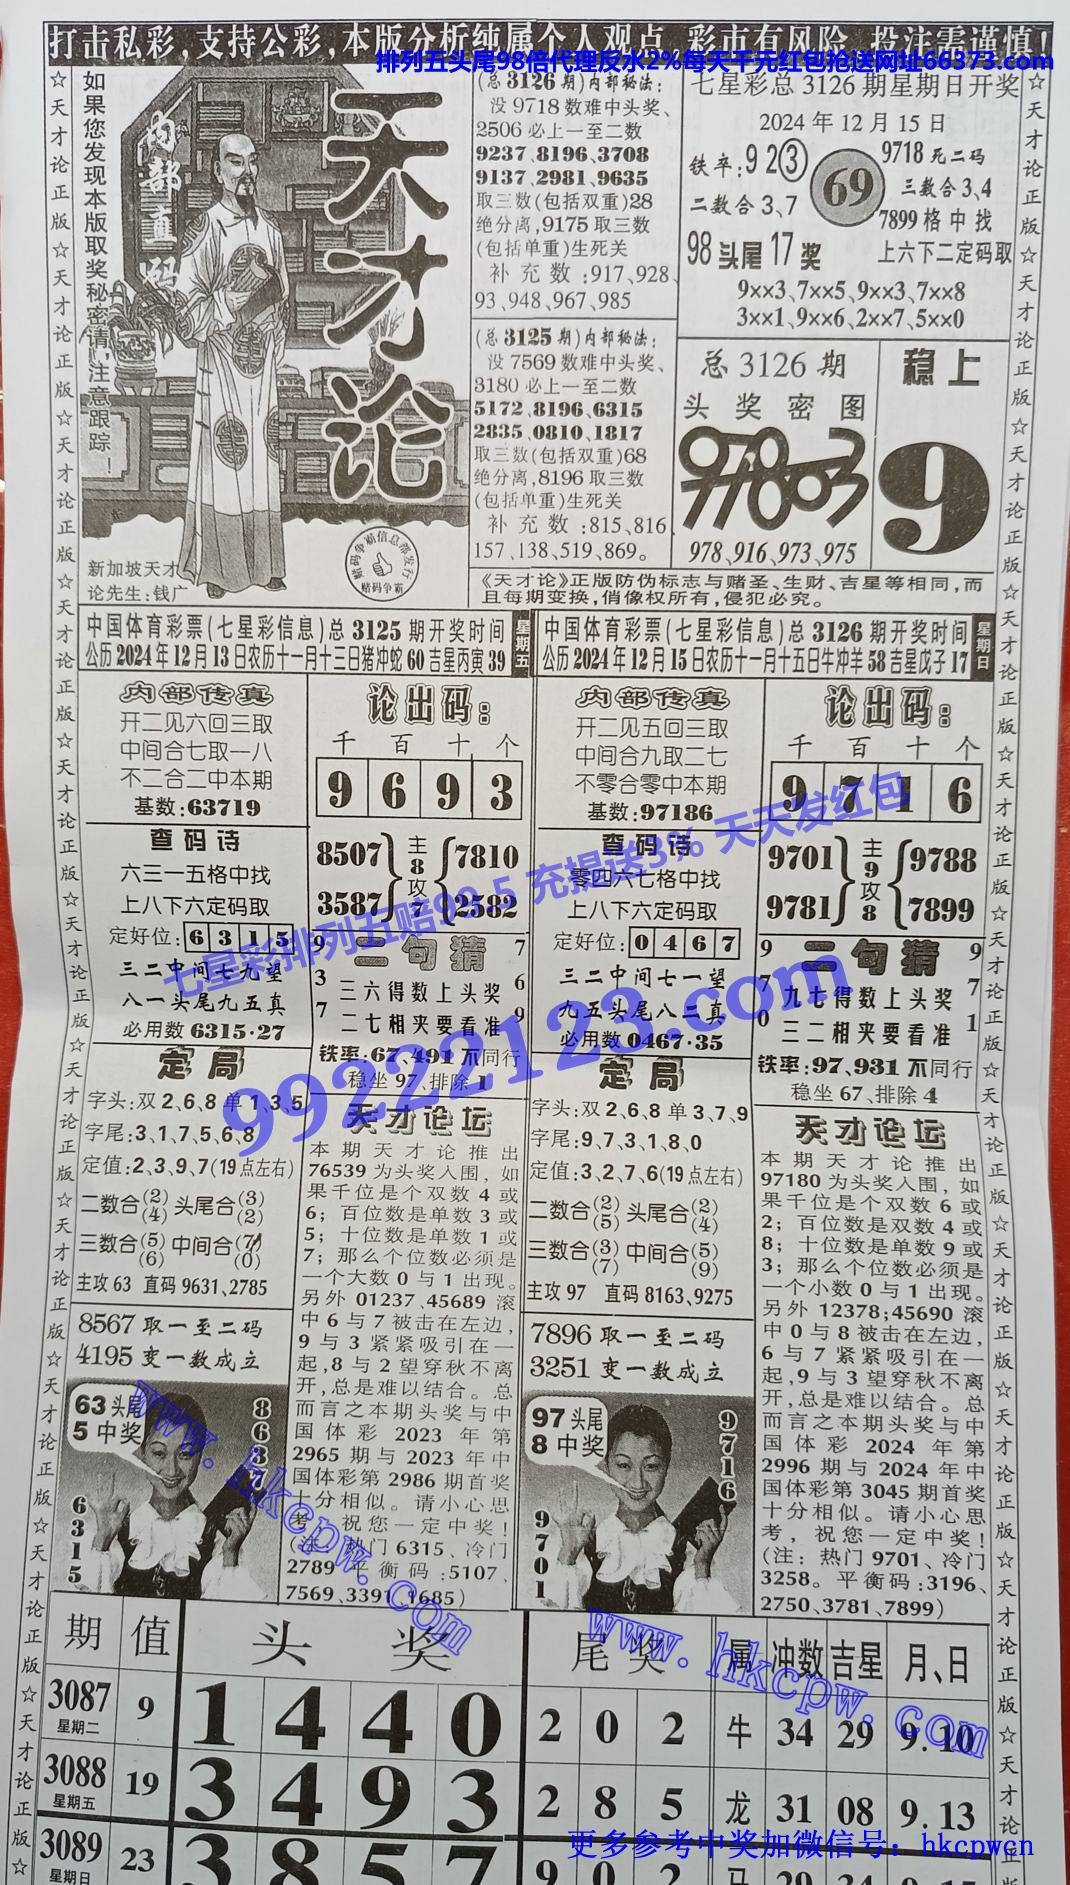 打击私彩,支持公彩,本版分析纯属个人观点,彩市有风险,投注需谨慎!
排列五头尾98倍代理反水2%每天千元红包抢送网址66373.com
☆天才论正版☆天才论正版☆天才论正版☆天才论正版☆天才论正版☆
如果您发现本版取奖秘密请,注意跟踪!
内部直码
天才论
新加坡天才
论先生:钱广
赌码争霸信息部发行
赌码争霸
(总3126期)内部秘法:
没9718数难中头奖、
2506必上一至二数
9237、8196、3708
9137、2981、9635
取三数(包括双重)28
绝分离,9175取三数
(包括单重)生死关
补充数:917、928、
93、948、967、985
(总3125期)内部秘法:
没7569数难中头奖、
3180必上一至二数
5172、8196、6315
2835、0810、1817
取三数(包括双重)68
绝分离,8196取三数
(包括单重)生死关
补充数:815、816
157、138、519、869。
七星彩总3126期星期日开奖
2024年12月15日
铁卒:92③
69
9718死二码
二数合3、7
三数合3、4
7899格中找
98头尾17奖
上六下二定码取
9××3、7××5、9××3、7××8
3××1、9××6、2××7、5××0
总3126期
头奖密图
97803
978、916、973、975
稳上
9
《天才论》正版防伪标志与赌圣、生财、吉星等相同,而
且每期变换,俏像权所有,侵犯必究。
中国体育彩票(七星彩信息)总3125期开奖时间
公历2024年12月13日农历十一月十三日猪冲蛇60吉星丙寅39
星期五
中国体育彩票(七星彩信息)总3126期开奖时间
公历2024年12月15日农历十一月十五日牛冲羊58吉星戊子17
星期日
内部传真
开二见六回三取
中间合七取一八
不二合二中本期
基数:63719
查码诗
六三一五格中找
上八下六定码取
定好位:6315
三二中间七九望
八一头尾九五真
必用数6315·27
论出码:
千百十个
9693
8507
3587
主8攻7
7810
2582
二句猜
9 3 7
7 6 9
三六得数上头奖
二七相夹要看准
铁率:67、491不同行
稳坐97、排除1
定局
字头:双2、6、8单1、3、5
字尾:3、1、7、5、6、8
定值:2、3、9、7(19点左右)
二数合(2)(4)头尾合(3)(2)
三数合(5)(6)中间合(7)(0)
主攻63 直码9631、2785
8567取一至二码
4195变一数成立
63头尾
5中奖
8637
6315
天才论坛
本期天才论推出
76539为头奖入围,如
果千位是个双数4或
6;百位数是单数3或
5;十位数是单数1或
7;那么个位数必须是
一个大数0与1出现。
另外01237、45689滚
中6与7被击在左边,
9与3紧紧吸引在一
起,8与2望穿秋不离
开,总是难以结合。总
而言之本期头奖与中
国体彩2023年第
2965期与2023年中
国体彩第2986期首奖
十分相似。请小心思
考,祝您一定中奖!
(注:热门6315、冷门
2789平衡码:5107、
7569、3391、1685)
内部传真
开二见五回三取
中间合九取二七
不零合零中本期
基数:97186
查码诗
零四六七格中找
上八下六定码取
定好位:0467
三二中间七一望
九五头尾八二真
必用数0467·35
论出码:
千百十个
9716
9701
9781
主9攻8
9788
7899
二句猜
9 7 0
9 7 1
九七得数上头奖
三二相夹要看准
铁率:97、931不同行
稳坐67、排除4
定局
字头:双2、6、8单3、7、9
字尾:9、7、3、1、8、0
定值:3、2、7、6(19点左右)
二数合(2)(5)头尾合(2)(4)
三数合(3)(7)中间合(5)(9)
主攻97 直码8163、9275
7896取一至二码
3251变一数成立
97头尾
8中奖
9716
9701
天才论坛
本期天才论推出
97180为头奖入围,如
果千位是个双数6或
2;百位数是双数4或
8;十位数是单数9或
3;那么个位数必须是
一个小数0与1出现。
另外12378;45690滚
中0与8被击在左边,
6与7紧紧吸引在一
起,9与3望穿秋不离
开,总是难以结合。总
而言之本期头奖与中
国体彩2024年第
2996期与2024年中
国体彩第3045期首奖
十分相似。请小心思
考,祝您一定中奖!
(注:热门9701、冷门
3258。平衡码:3196、
2750、3781、7899)
七星彩排列五赔99.5 充提送3% 天天发红包
99222123.com
www.hkcpw.com
www.hkcpw.com
期 值 头奖 尾奖 属 冲数 吉星 月、日
3087 星期二 9 1 4 4 0 2 0 2 牛 34 29 9.10
3088 星期五 19 3 4 9 3 2 8 5 龙 31 08 9.13
3089 星期日 23 3 8 5 7 9 0 2 马 29 34
更多参考中奖加微信号:hkcpwcn